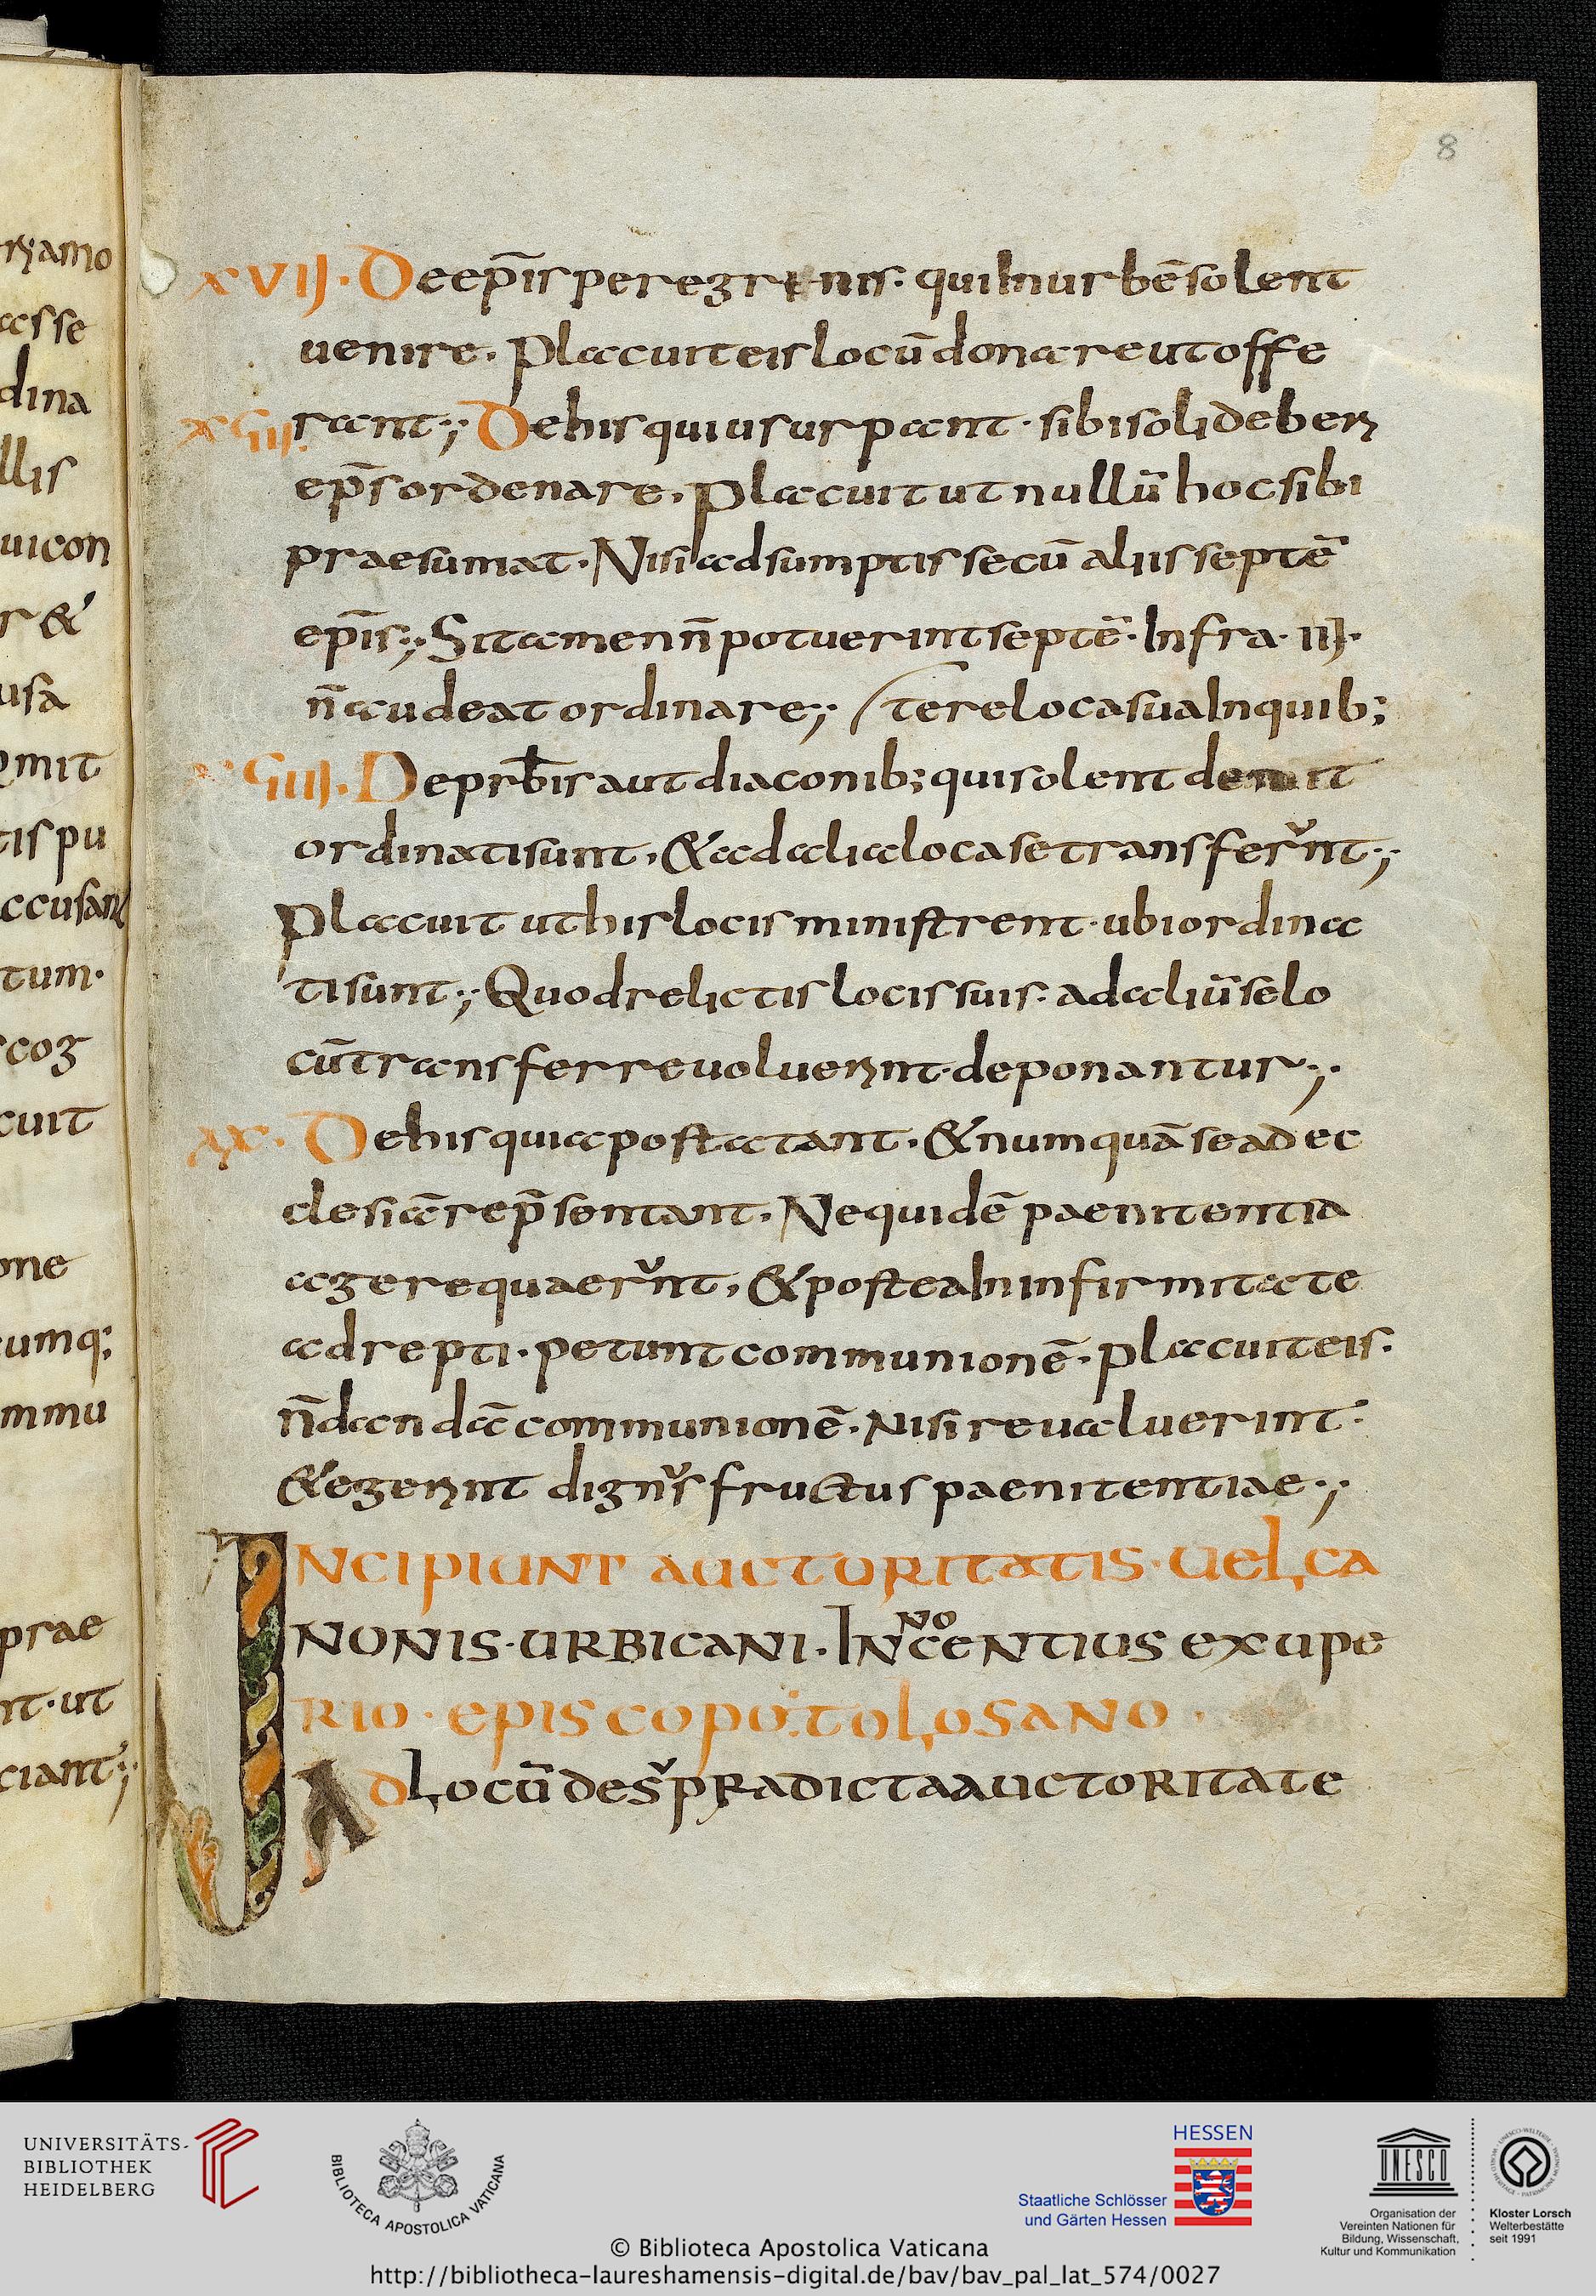 8
XVII· De ep̄is peregrenis· qui In urbē solent
uenire· placuit eis locū donare ut offe
XGII· rant·; De his qui usurpant· sibi soli deber&
ep̄s ordenare· placuit ut nullū hoc sibi
praesumat· Nisi adsumptis secū aliis septē
ep̄is·; Si tamen n̄ potuerint septē· Infra· III·
n̄ audeat ordinare·; tere loca sua In quib;
XGIII· De prb̄is aut diaconib; qui solent
ordinati sunt, & ad alia loca se transferunt·;
placuit ut his locis ministrent· ubi ordina
ti sunt·; Quod relictis locis suis· ad aliū se lo
cū transferre uoluerint· deponantur·;
XX· De his qui apostatant· & numquā se ad ec
clesiā rep̄sentant· Ne quidē paenitentia
agere quaerunt, & postea In infirmitate
adrepti· petunt communionē· placuit eis·
n̄ dandā communionē· Nisi reualuerint·
& egerint dignus fructus paenitentiae·;
INCIPIUNT AUCTORITATIS· UEL CA
NONIS· URBICANI· INNOCENTIUS EXUPE
RIO· EPISCOPO: TOLOSANO·
AD LOCŪ DE SUPRADICTA AUCTORITATE
ri amo
asse
dina
llis
uicon
r &
usa
mit
tis pu
ccusant
tum·
coz
cuit
one
umq;
mmu
prae
nt· ut
ciant·;
UNIVERSITÄTS-
BIBLIOTHEK
HEIDELBERG
BIBLIOTECA APOSTOLICA VATICANA
HESSEN
Staatliche Schlösser
und Gärten Hessen
UNESCO
Organisation der
Vereinten Nationen für
Bildung, Wissenschaft,
Kultur und Kommunikation
Kloster Lorsch
Welterbestätte
seit 1991
© Biblioteca Apostolica Vaticana
http://bibliotheca-laureshamensis-digital.de/bav/bav_pal_lat_574/0027